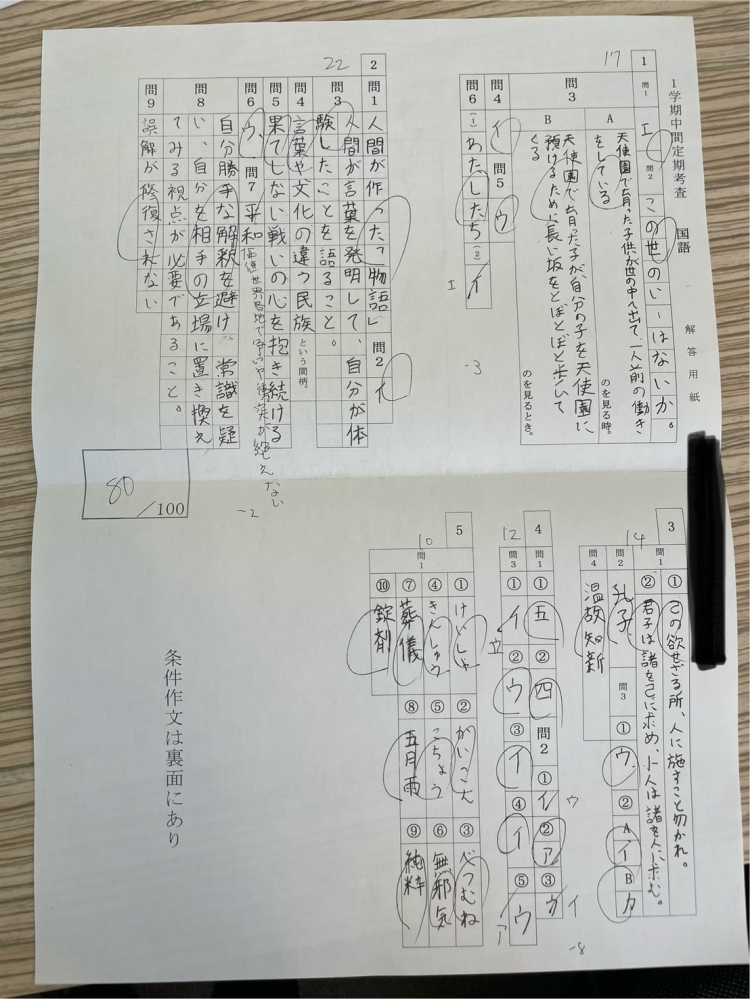 1学期中間定期考査 国語 解答用紙
1
17
問1 エ 問2 この世のい〜はないか。
問3
A 天使園で育った子供が世の中へ出て、一人前の働き
をしている のを見る時。
B 天使園で育った子が、自分の子を天使園に
預けるために長い坂をとぼとぼと歩いて
くる のを見るとき。
問4 イ 問5 ウ
問6 (1) わたしたち (2) イ
エ
-3
2
22
問1 人間が作った「物語」 問2 イ
問3 人間が言葉を発明して、自分が体
験したことを語ること。
問4 言葉や文化の違う民族 という間柄。
問5 果てしない戦いの心を抱き続ける
問6 ウ 問7 平和
価値 世界各地で争いや 絶えない
問8 自分勝手な解釈を避け、常識を疑
い、自分を相手の立場に置き換え
てみる視点が必要であること。
問9 誤解が修復されない
-2
80/100
3
14
問1 ① 己の欲せざる所、人に施すこと勿かれ。
② 君子は諸を己に求め、小人は諸を人に求む。
問2 孔子 問3 ① ウ ② A イ B カ
問4 温故知新
4
12
問1 ① 五 ② 四 問2 ① イ ② ア ③ カ
ウ イ
問3 ① イ ② ウ ③ イ ④ イ ⑤ ウ
ア
-8
5
10
問1 ① けいしゃ ② がいこつ ③ べつむね
④ きんしゅう ⑤ こちょう ⑥ 無邪気
⑦ 葬儀 ⑧ 五月雨 ⑨ 純粋
⑩ 錠剤
条件作文は裏面にあり